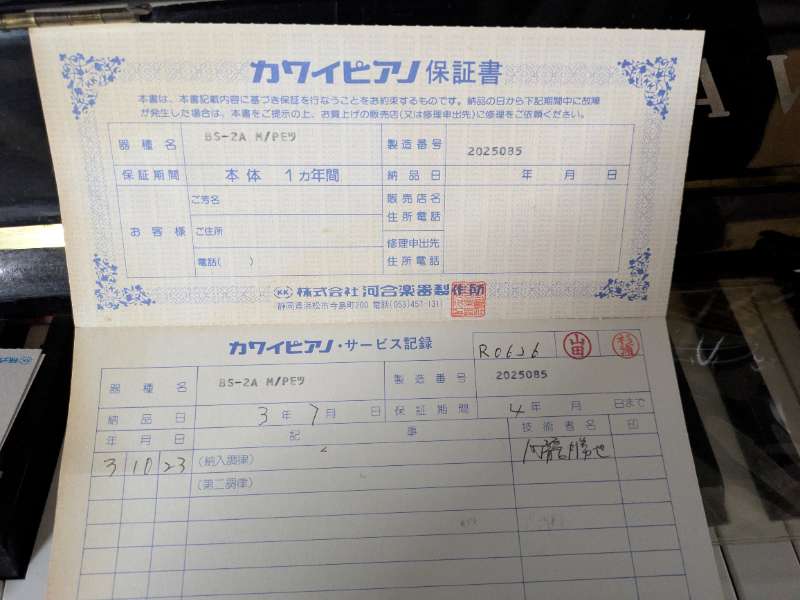 カワイピアノ 保証書
本書は、本書記載内容に基づき保証を行なうことをお約束するものです。納品の日から下記期間中に故障
が発生した場合は、本書をご提示の上、お買上げの販売店(又は修理申出先)に修理をご依頼ください。
器種名 BS-2A M/PEツ 製造番号 2025085
保証期間 本体 1ヵ年間 納品日 年 月 日
お客様 ご芳名 販売店名
住所電話
ご住所 修理申出先
電話( ) 住所電話
KK 株式会社 河合楽器製作所
静岡県浜松市寺島町200 電話(053)457-1311
カワイピアノ・サービス記録 山田
器種名 BS-2A M/PEツ 製造番号 2025085
納品日 3年 7月 日 保証期間 4年 月 日まで
年 月 日 記 事 技術者名 印
3 10 23 (納入調律)
(第二調律)